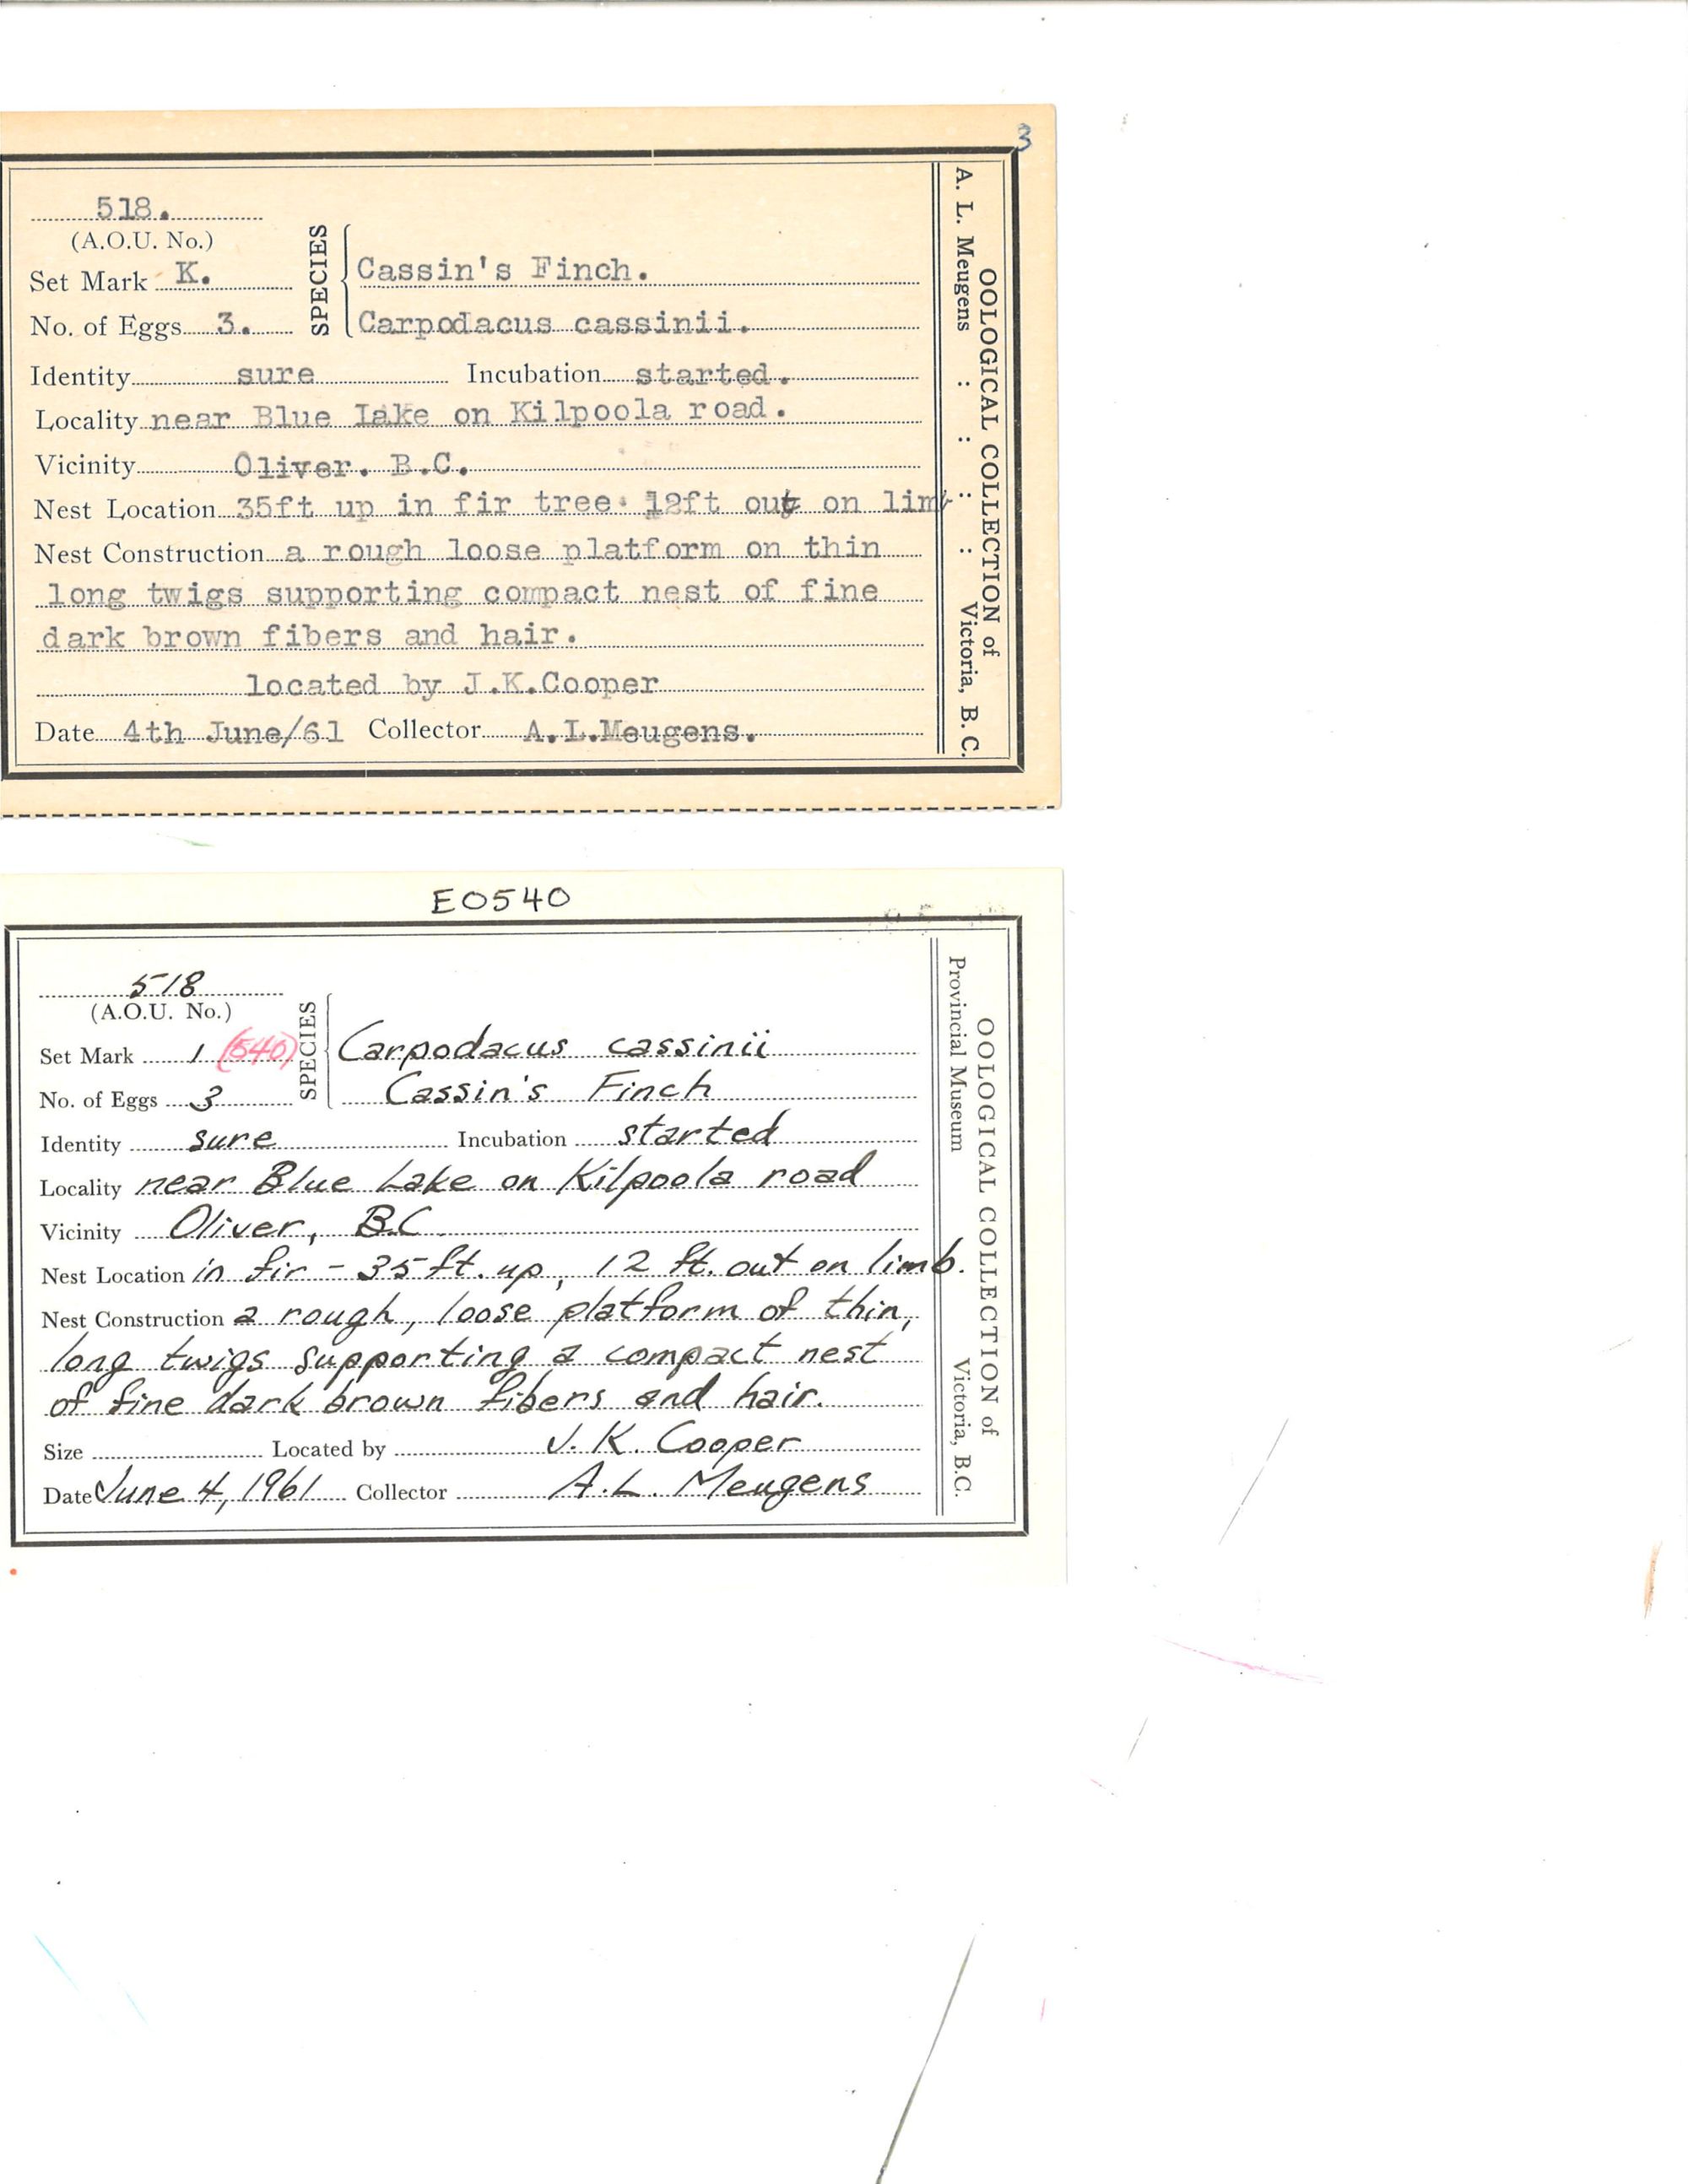 3
518.
(A.O.U. No.)
Set Mark K.
No. of Eggs 3.
SPECIES
Cassin's Finch.
Carpodacus cassinii.
Identity sure Incubation started.
Locality near Blue Lake on Kilpoola road.
Vicinity Oliver. B.C.
Nest Location 35ft up in fir tree. 12ft out on limb
Nest Construction a rough loose platform on thin
long twigs supporting compact nest of fine
dark brown fibers and hair.
located by J.K.Cooper
Date 4th June/61 Collector A.L.Meugens.
OOLOGICAL COLLECTION of
A. L. Meugens : : : : Victoria, B. C.
E0540
518
(A.O.U. No.)
Set Mark 1 (540)
No. of Eggs 3
SPECIES
Carpodacus cassinii
Cassin's Finch
Identity sure Incubation started
Locality near Blue Lake on Kilpoola road
Vicinity Oliver, B.C.
Nest Location in fir - 35 ft. up, 12 ft. out on limb.
Nest Construction a rough, loose platform of thin,
long twigs supporting a compact nest
of fine dark brown fibers and hair.
Size Located by J. K. Cooper
Date June 4, 1961 Collector A.L. Meugens
OOLOGICAL COLLECTION of
Provincial Museum Victoria, B.C.